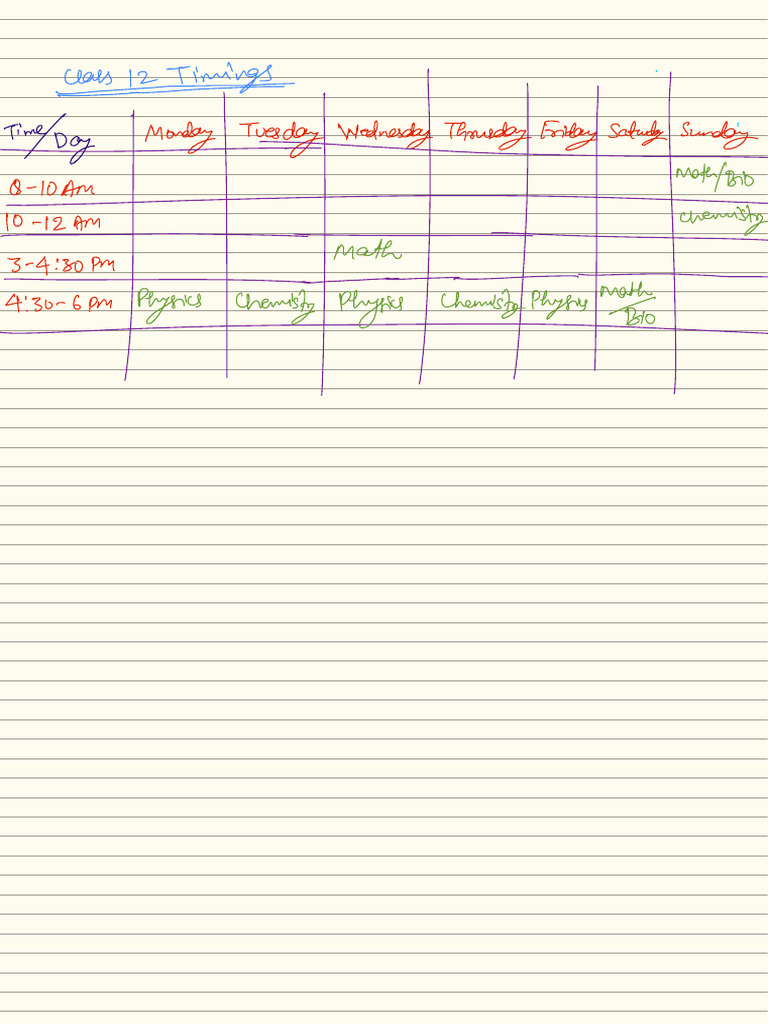 Class 12 Timings
Time/Day Monday Tuesday Wednesday Thursday Friday Saturday Sunday
8-10 AM Math/Bio
10-12 AM Chemistry
3-4:30 PM Math
4:30-6 PM Physics Chemistry Physics Chemistry Physics Math/Bio